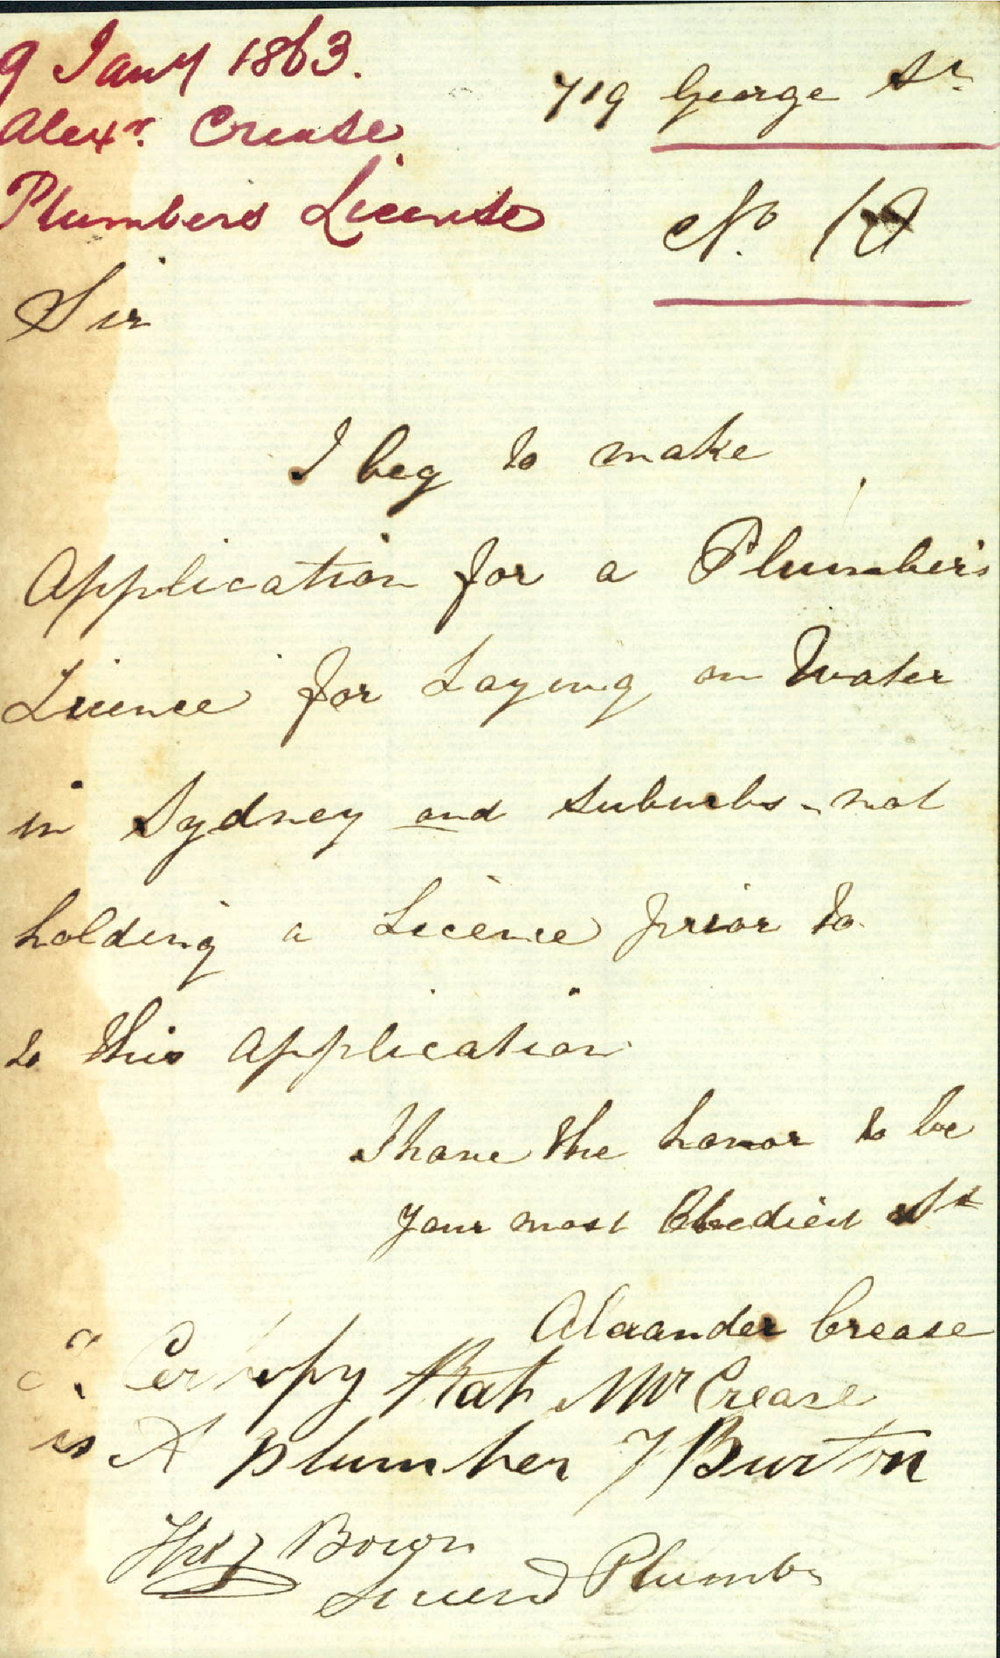 9 Jany 1863.
Alexr. Crease
Plumbers License
719 George St.
No. 10
Sir
I beg to make
Application for a Plumber's
Licence for Laying on Water
in Sydney and suburbs - not
holding a Licence prior to
to this Application
I have the honor to be
your most Obedient St
Alexander Crease
I Certify that Mr Crease
is A plumber T Burton
Thos Bown
Licensed Plumbr